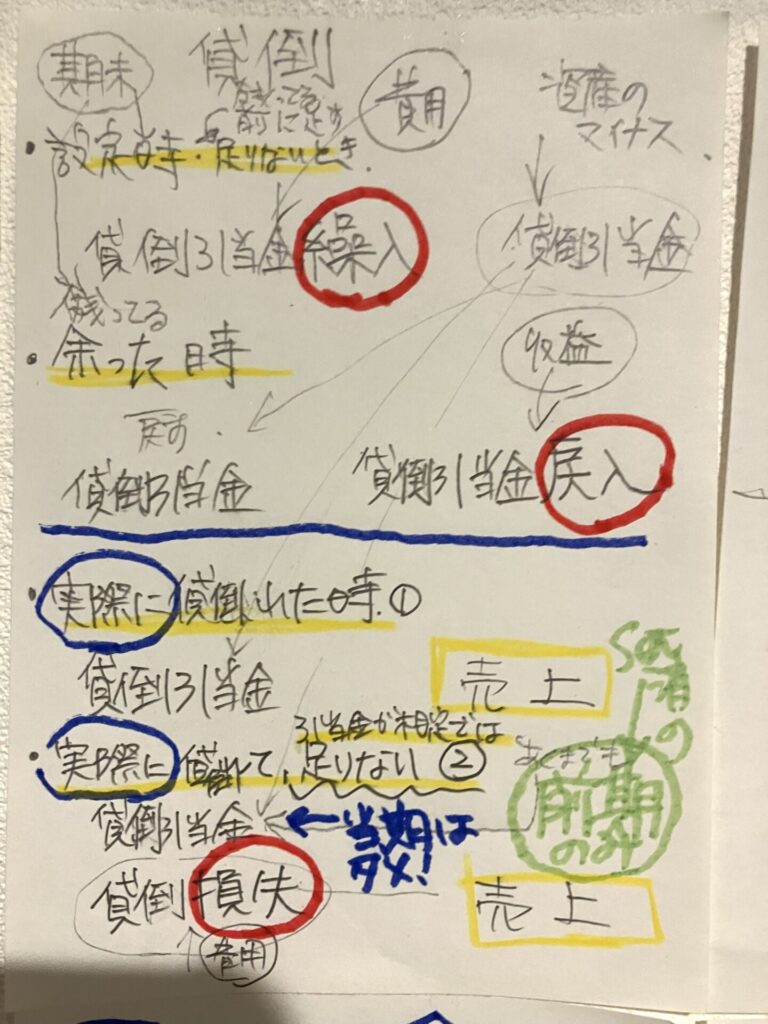 期末
貸倒
費用
資産の
マイナス
前に足す
設定時・足りないとき
貸倒引当金繰入
貸倒引当金
残ってる
余った時
収益
戻す
貸倒引当金
貸倒引当金戻入
実際に貸倒れた時①
貸倒引当金
売上
引当金が設定では
実際に貸倒れて、足りない②
あくまでも
前期
のみ
貸倒引当金
←当期は
ダメ!
貸倒損失
売上
費用